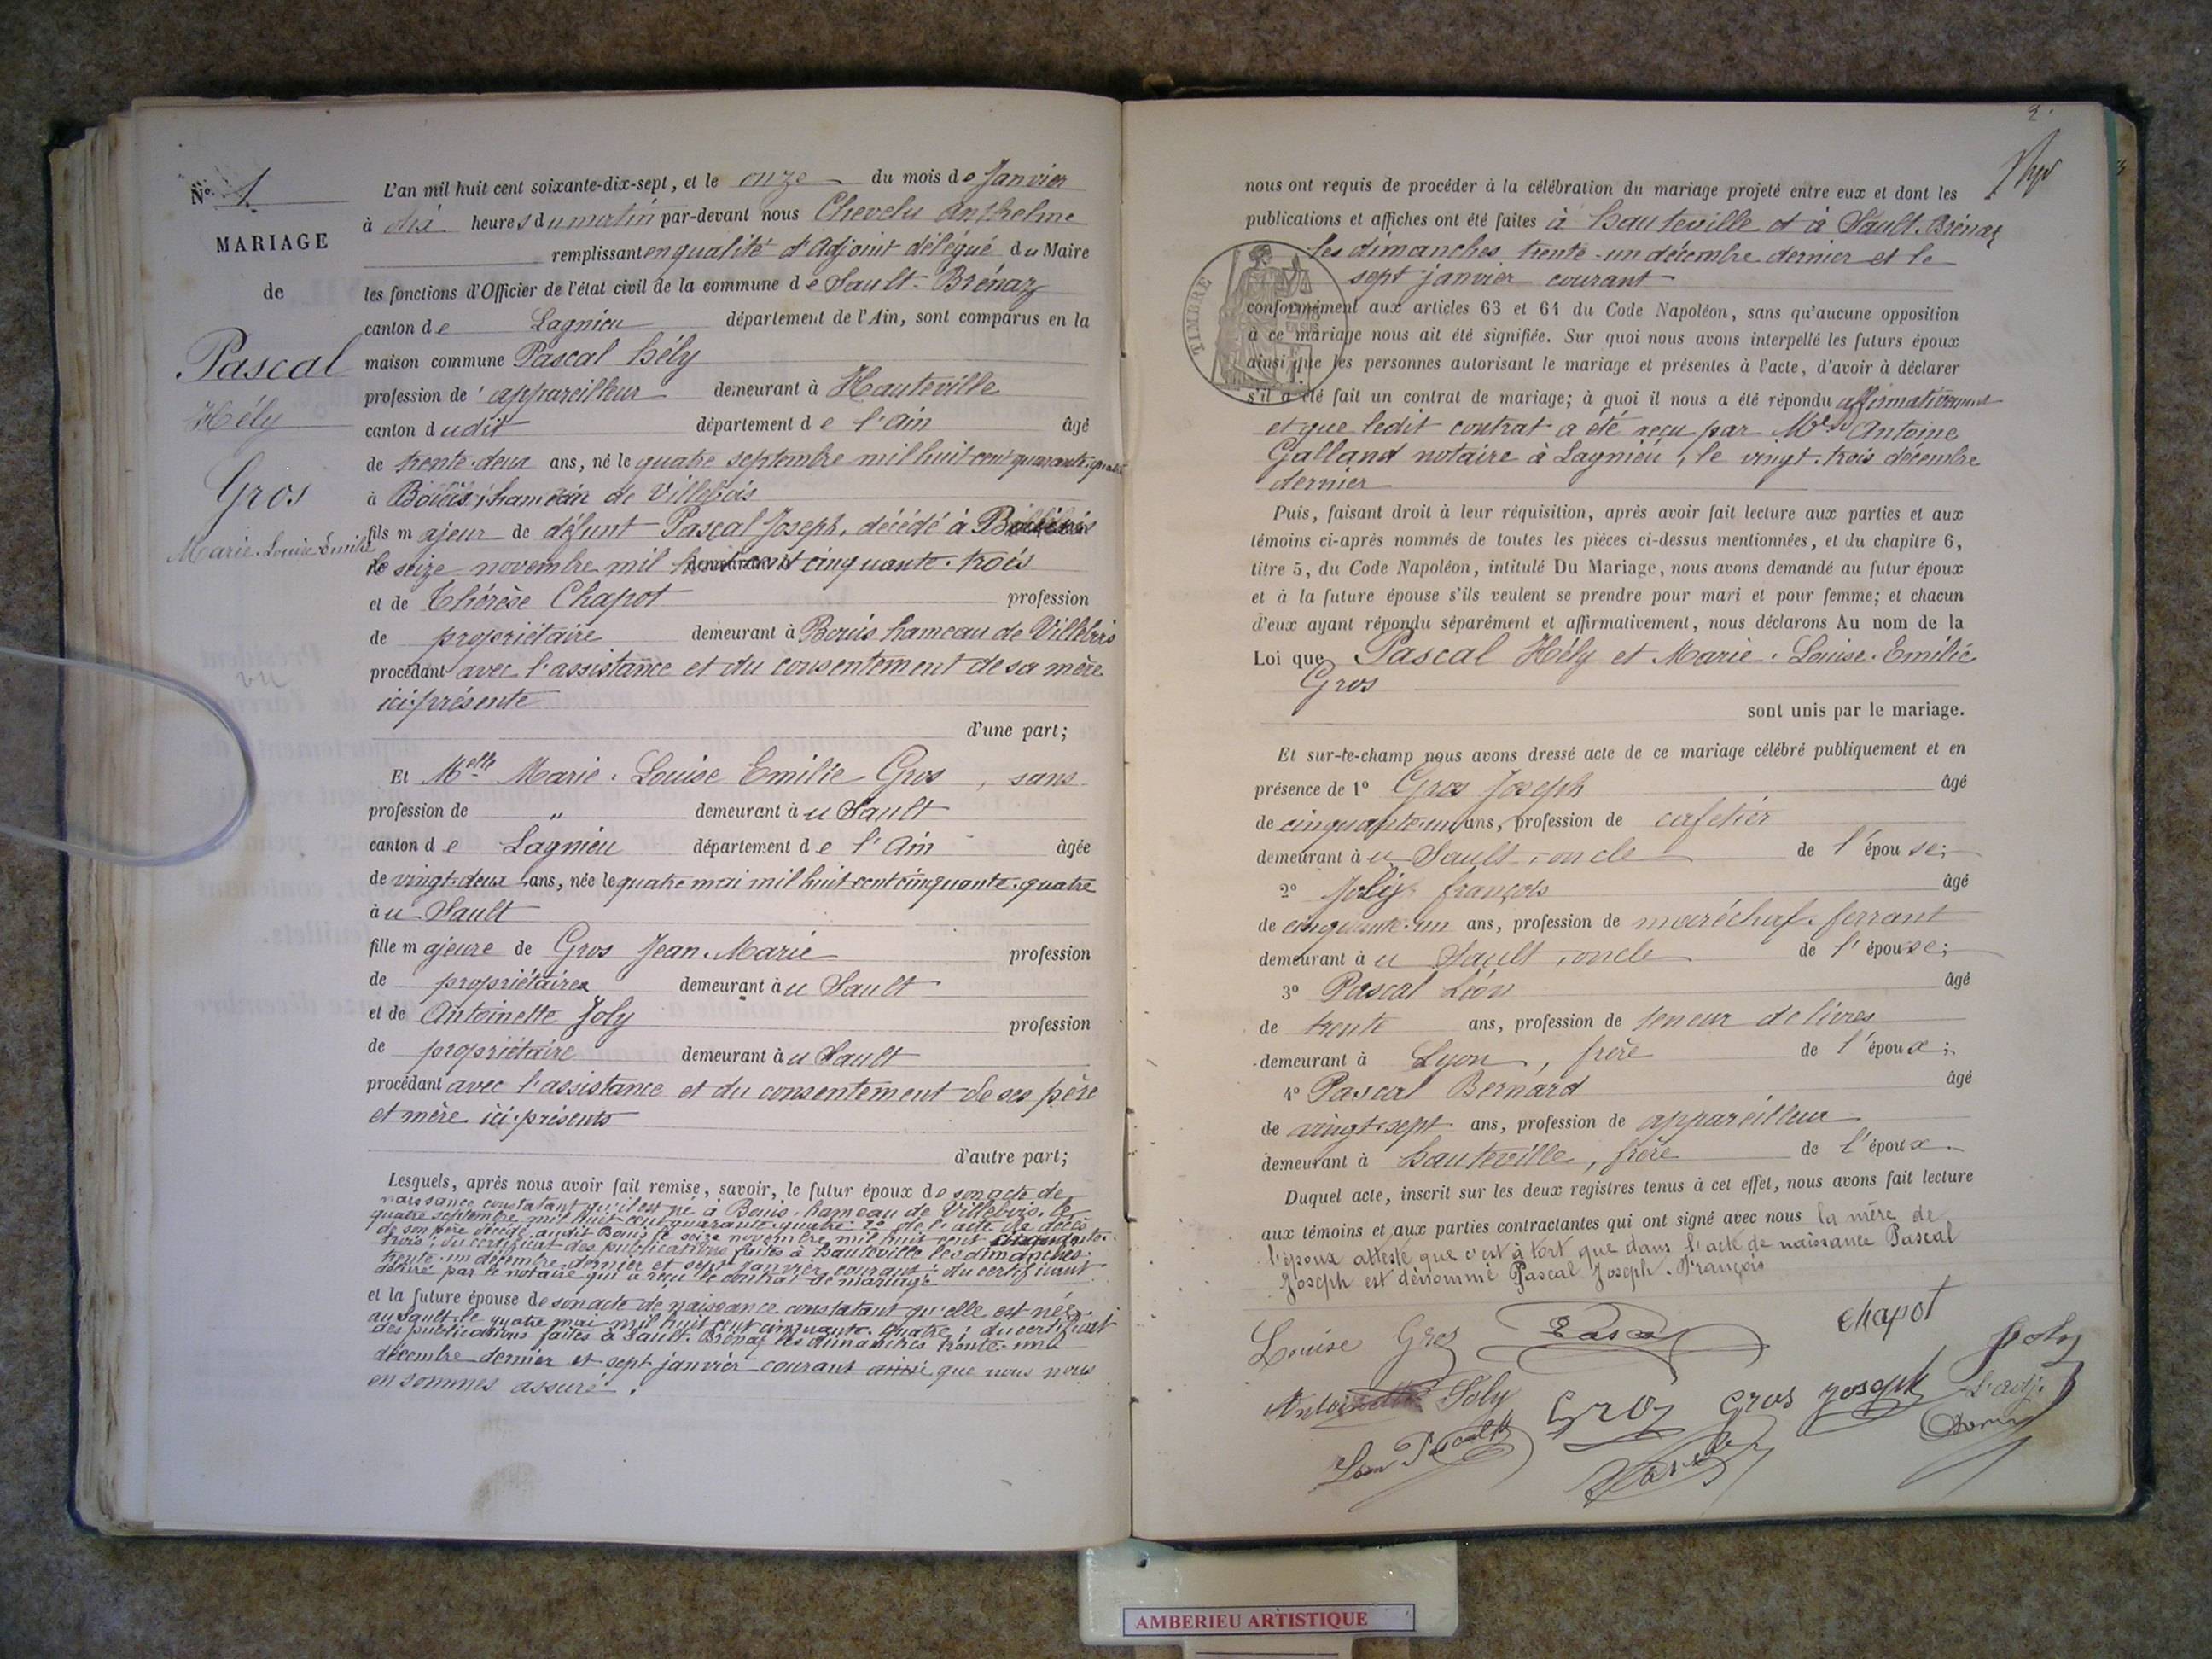 Nº 1
MARIAGE
de
Pascal
Hély
Gros
Marie-Louise-Emilie
L'an mil huit cent soixante-dix-sept, et le onze du mois de Janvier
à dix heures du matin par-devant nous Chevelu Anthelme
remplissant en qualité d'Adjoint délégué du Maire
les fonctions d'Officier de l'état civil de la commune de Sault-Brénaz
canton de Lagnieu département de l'Ain, sont comparus en la
maison commune Pascal hély
profession de appareilleur demeurant à Hauteville
canton dudit département de l'ain âgé
de trente-deux ans, né le quatre septembre mil huit cent quarante-quatre
à Bouis, hameau de Villebois
fils majeur de défunt Pascal Joseph, décédé à
le seize novembre mil huit cent cinquante-trois
et de Thérèse Chapot profession
de propriétaire demeurant à Bouis hameau de Villebois
procédant avec l'assistance et du consentement de sa mère
ici présente
d'une part;
Et Melle Marie-Louise Emilie Gros, sans
profession de " demeurant à u Sault
canton de Lagnieu département de l'Ain âgée
de vingt-deux ans, née le quatre mai mil huit cent cinquante-quatre
à u Sault
fille majeure de Gros Jean-Marie profession
de propriétaire demeurant à u Sault
et de Antoinette Joly profession
de propriétaire demeurant à u Sault
procédant avec l'assistance et du consentement de ses père
et mère ici présents
d'autre part;
Lesquels, après nous avoir fait remise, savoir, le futur époux de son acte de
naissance constatant qu'il est né à Bouis, hameau de Villebois, le
quatre septembre mil huit cent quarante-quatre 2º de l'acte de décès
de son père décédé audit Bouis le seize novembre mil huit cent cinquante-
trois; du certificat des publications faites à hauteville les dimanches
trente-un décembre dernier et sept janvier courant; du certificat
délivré par le notaire qui a reçu le contrat de mariage
et la future épouse de son acte de naissance constatant qu'elle est née
au Sault le quatre mai mil huit cent cinquante-quatre; du certificat
des publications faites à Sault-Brénaz les dimanches trente-un
décembre dernier et sept janvier courant ainsi que nous nous
en sommes assuré.
2.
nous ont requis de procéder à la célébration du mariage projeté entre eux et dont les
publications et affiches ont été faites à hauteville et à Sault-Brénaz
les dimanches trente-un décembre dernier et le
sept janvier courant
TIMBRE
conformément aux articles 63 et 64 du Code Napoléon, sans qu'aucune opposition
à ce mariage nous ait été signifiée. Sur quoi nous avons interpellé les futurs époux
ainsi que les personnes autorisant le mariage et présentes à l'acte, d'avoir à déclarer
s'il a été fait un contrat de mariage; à quoi il nous a été répondu affirmativement
et que ledit contrat a été reçu par Me Antoine
Galland notaire à Lagnieu, le vingt-trois décembre
dernier
Puis, faisant droit à leur réquisition, après avoir fait lecture aux parties et aux
témoins ci-après nommés de toutes les pièces ci-dessus mentionnées, et du chapitre 6,
titre 5, du Code Napoléon, intitulé Du Mariage, nous avons demandé au futur époux
et à la future épouse s'ils veulent se prendre pour mari et pour femme; et chacun
d'eux ayant répondu séparément et affirmativement, nous déclarons Au nom de la
Loi que Pascal Hély et Marie-Louise-Emilie
Gros
sont unis par le mariage.
Et sur-le-champ nous avons dressé acte de ce mariage célébré publiquement et en
présence de 1º Gros Joseph âgé
de cinquante-un ans, profession de cafetier
demeurant à u Sault, oncle de l'épouse;
2º Joly françois âgé
de cinquante-un ans, profession de maréchal-ferrant
demeurant à u Sault, oncle de l'épouse;
3º Pascal Léon âgé
de trente ans, profession de teneur de livres
demeurant à Lyon, frère de l'époux;
4º Pascal Bernard âgé
de vingt-sept ans, profession de appareilleur
demeurant à hauteville, frère de l'époux
Duquel acte, inscrit sur les deux registres tenus à cet effet, nous avons fait lecture
aux témoins et aux parties contractantes qui ont signé avec nous la mère de
l'époux atteste que c'est à tort que dans l'acte de naissance Pascal
Joseph est dénommé Pascal Joseph-François
Louise Gros Pascal Chapot Joly
Antoinette Joly Gros Gros Joseph
Léon Pascal
AMBERIEU ARTISTIQUE